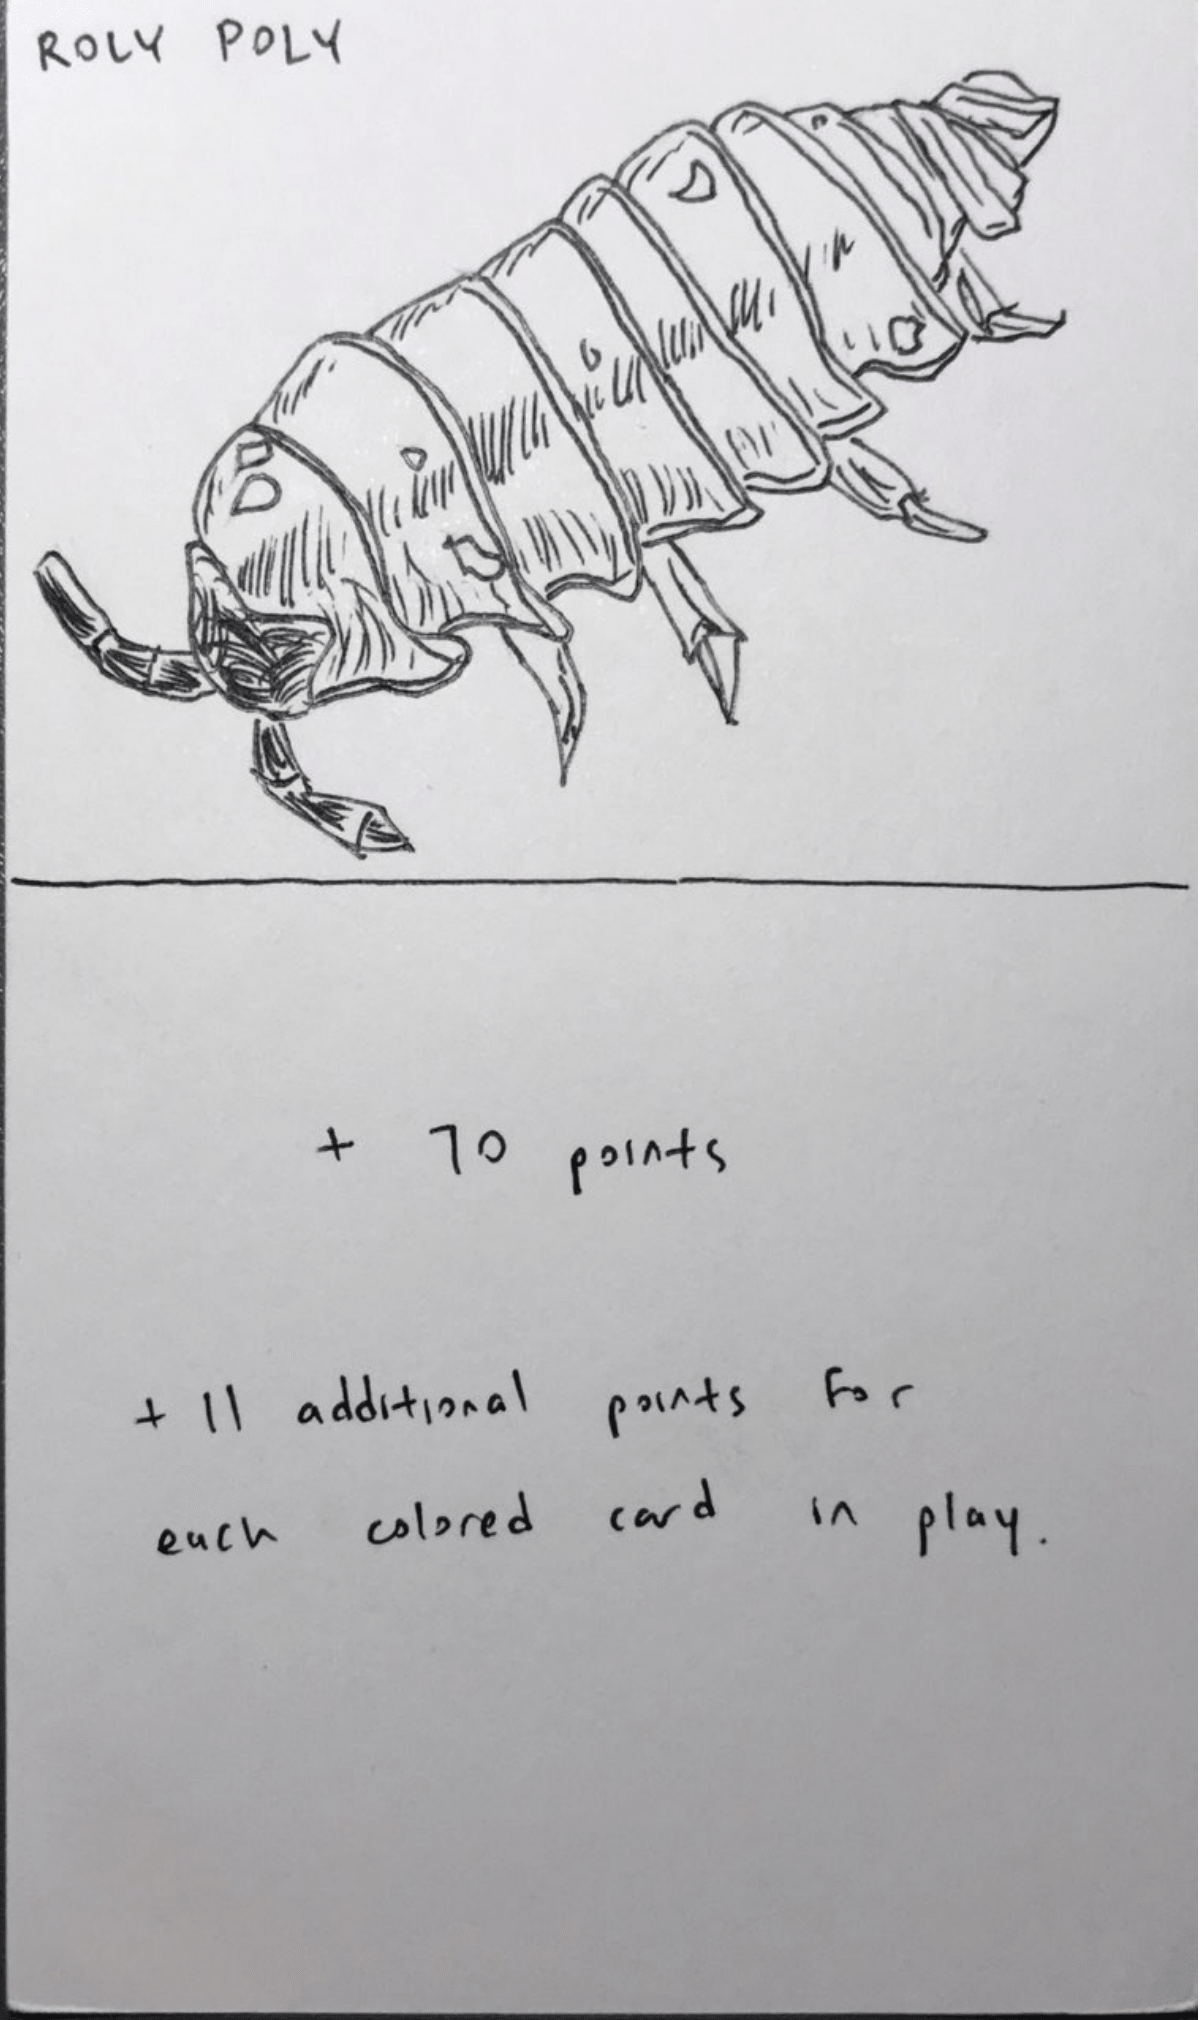 ROLY POLY
+ 70 points
+ 11 additional points for
each colored card in play.